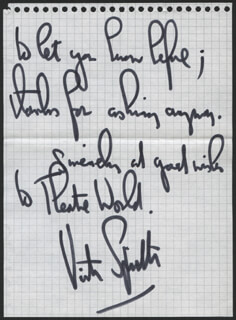 to let you know before;
thanks for asking anyway.
Sincerely and good wishes
to Theatre World.
Victor Spinetti